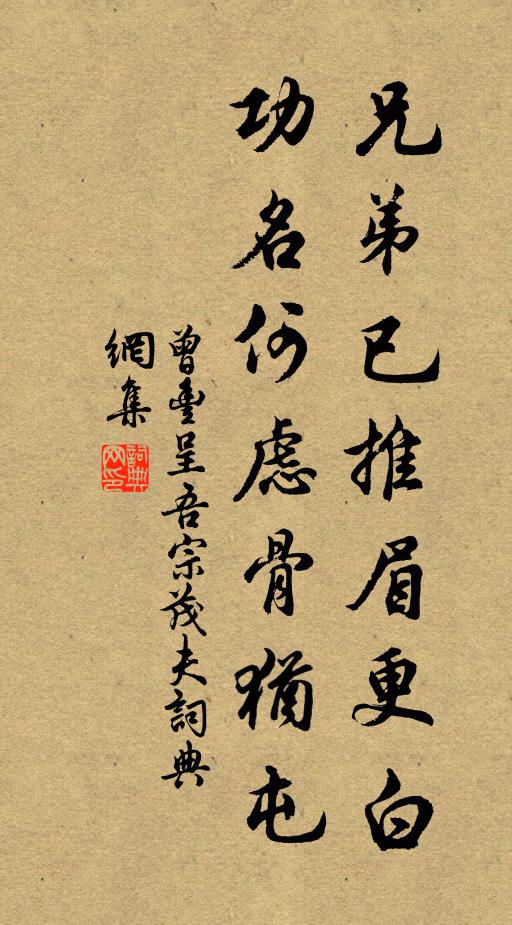 兄弟已推眉更白
功名何慮骨猶屯
曾豊呈吾宗茂夫詞典
網集
詞典网印